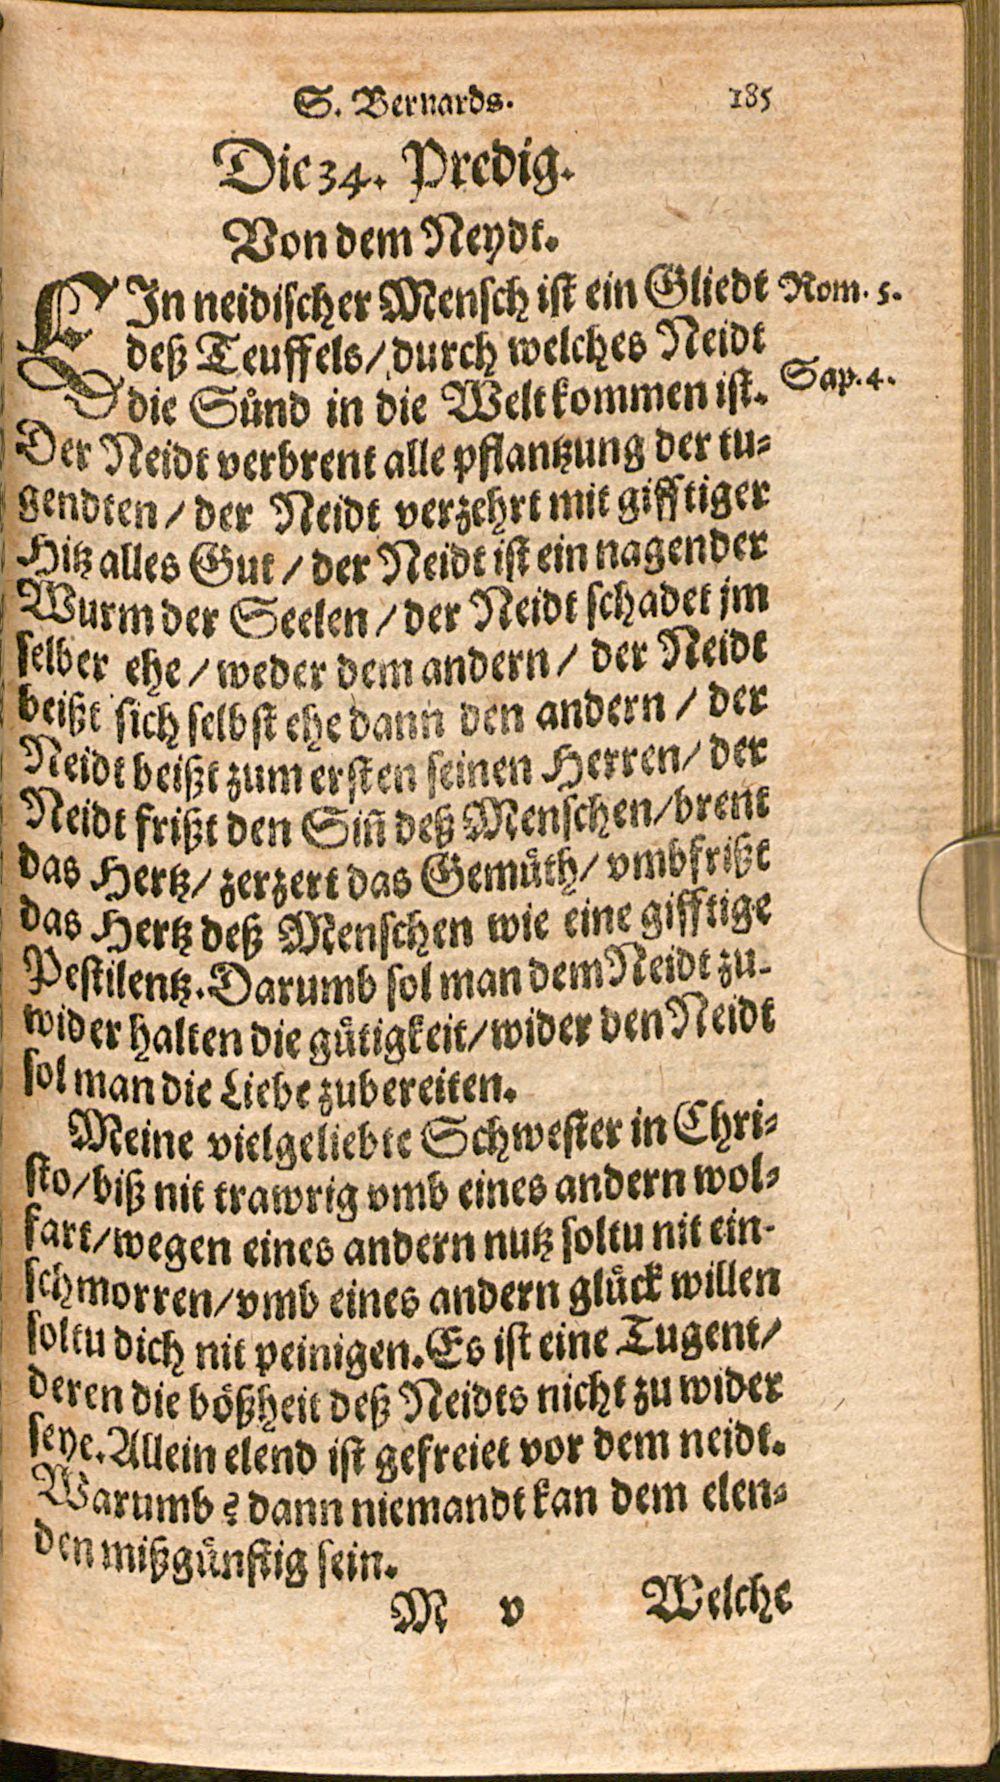 S. Bernards. 185
Die 34. Predig.
Von dem Neydt.
EIn neidischer Mensch ist ein Gliedt Rom. 5.
deß Teuffels/ durch welches Neidt
die Sůnd in die Welt kommen ist. Sap. 4.
Der Neidt verbrent alle pflantzung der tu-
gendten/ der Neidt verzehrt mit gifftiger
Hitz alles Gut/ der Neidt ist ein nagender
Wurm der Seelen/ der Neidt schadet jm
selber ehe/ weder dem andern/ der Neidt
beißt sich selbst ehe dann den andern/ der
Neidt beißt zum ersten seinen Herren/ der
Neidt frißt den Siñ deß Menschen/ brent
das Hertz/ zerzert das Gemůth/ vmbfrißt
das Hertz deß Menschen wie eine gifftige
Pestilentz. Darumb sol man dem Neidt zu-
wider halten die gůtigkeit/ wider den Neidt
sol man die Liebe zubereiten.
Meine vielgeliebte Schwester in Chri-
sto/ biß nit trawrig vmb eines andern wol-
fart/ wegen eines andern nutz soltu nit ein-
schmorren/ vmb eines andern glůck willen
soltu dich nit peinigen. Es ist eine Tugent/
deren die bößheit deß Neidts nicht zu wider
seye. Allein elend ist gefreiet vor dem neidt.
Warumb? dann niemandt kan dem elen-
den mißgůnstig sein.
M v Welche